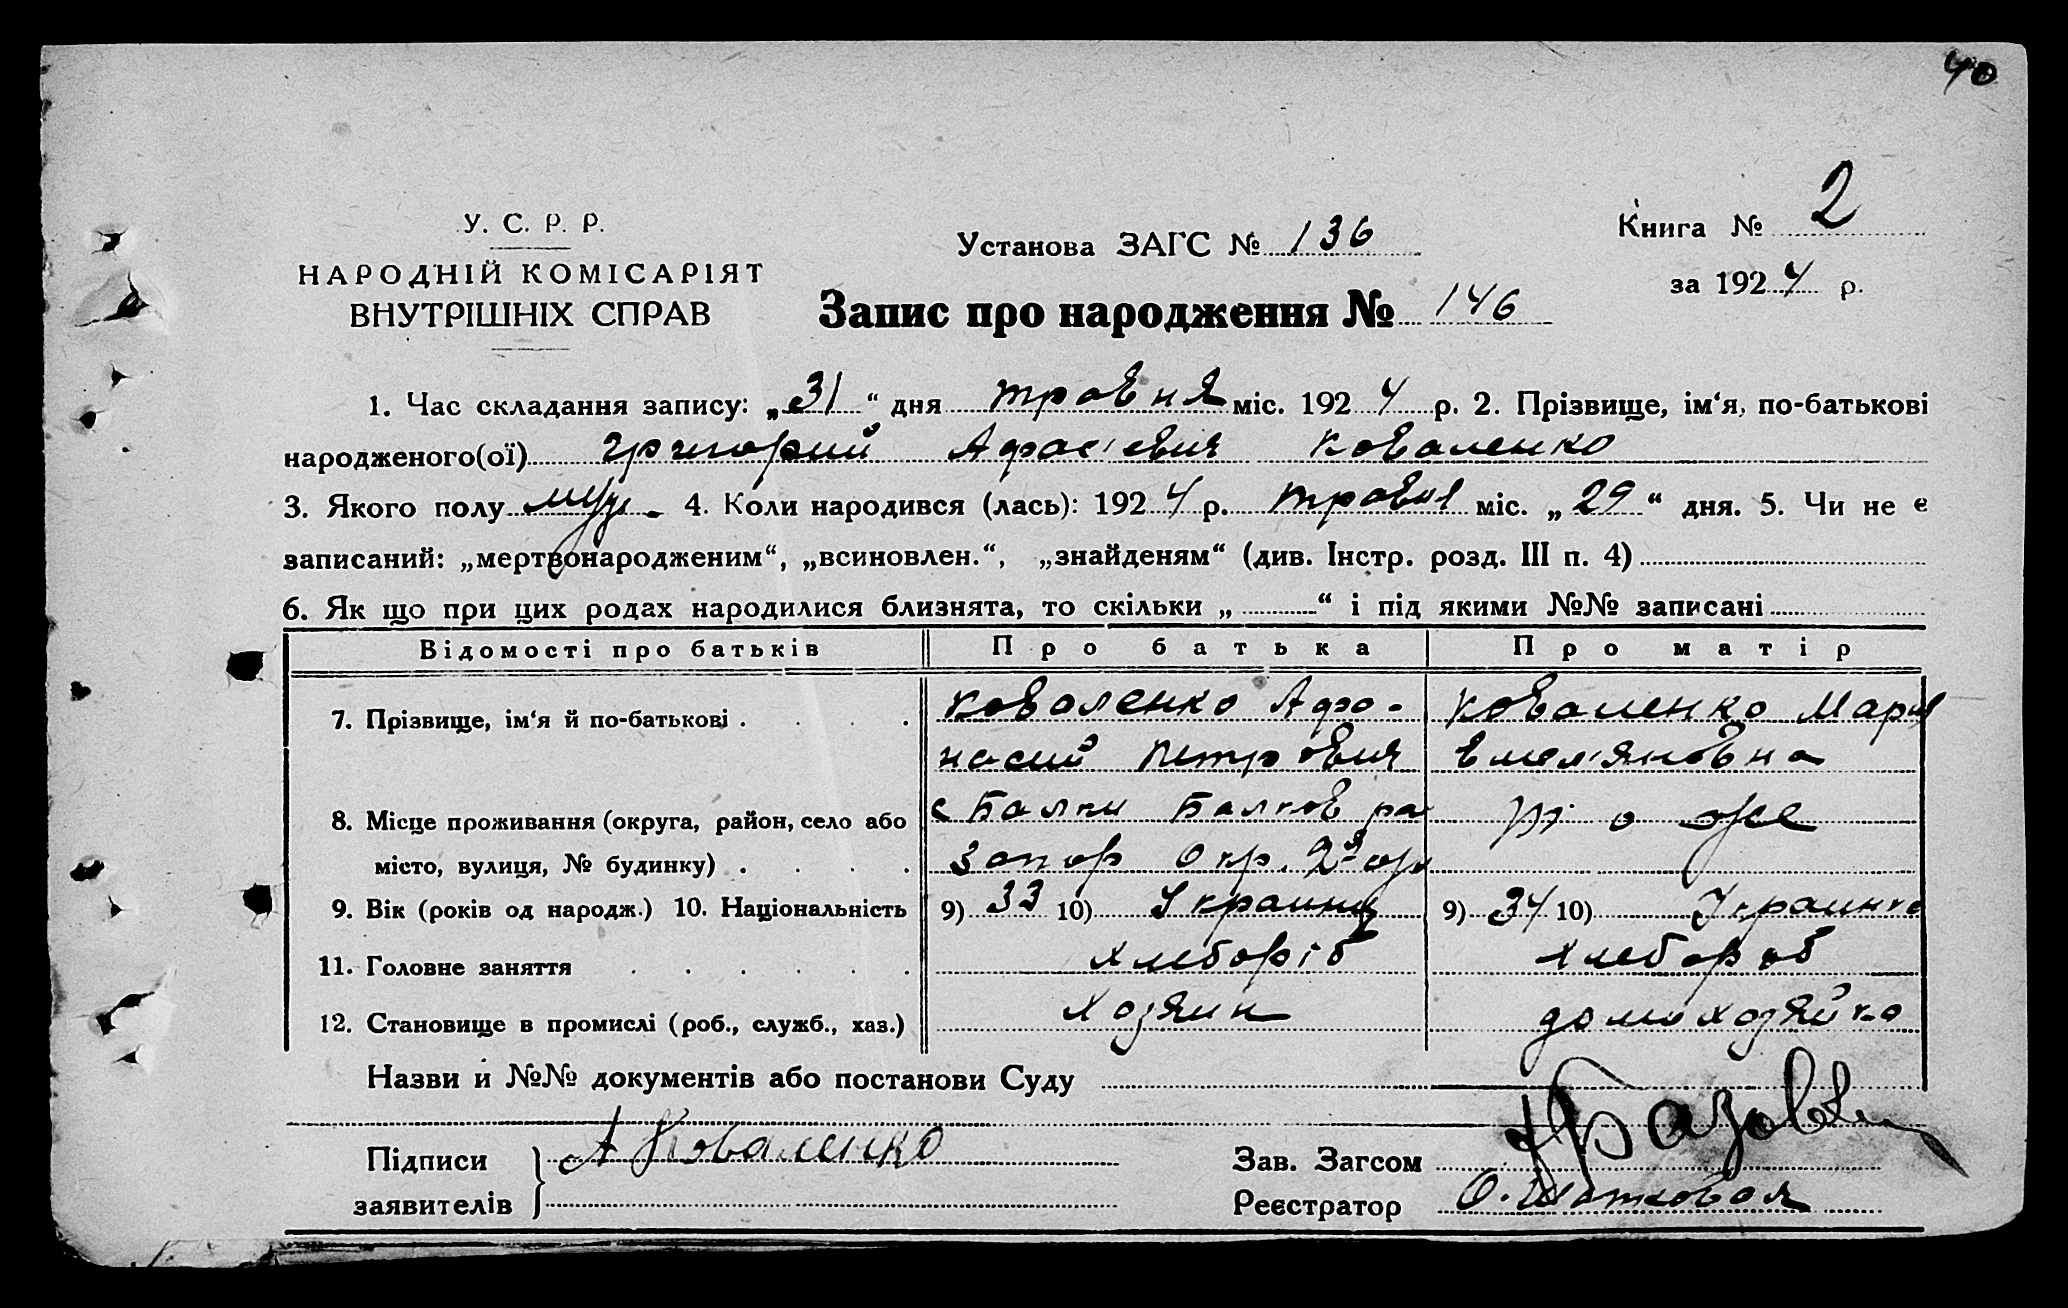 40
У. С. Р. Р.
НАРОДНІЙ КОМІСАРІЯТ
ВНУТРІШНІХ СПРАВ
Установа ЗАГС № 136
Книга № 2
за 1924 р.
Запис про народження № 146
1. Час складання запису: „31“ дня травня міс. 1924 р. 2. Прізвище, ім‘я, по-батькові
народженого(ої) Григорий Афас'евич Коваленко
3. Якого полу муж. 4. Коли народився (лась): 1924 р. травня міс. „29“ дня. 5. Чи не є
записаний: „мертвонародженим“, „всиновлен.“, „знайденям“ (див. Інстр. розд. III п. 4)
6. Як що при цих родах народилися близнята, то скільки „ “ і під якими №№ записані
Відомості про батьків Про батька Про матір
7. Прізвище, ім‘я й по-батькові . . . . Коваленко Афа- Коваленко Мария
насий Петрович Емел'яновна
8. Місце проживання (округа, район, село або с Балки Балков ра то же
місто, вулиця, № будинку) . . . . Запор Окр.
9. Вік (років од народж.) 10. Національність 9) 33 10) Украинец 9) 34 10) Украинка
11. Головне заняття . . . . . . хлеборіб хлебороб
12. Становище в промислі (роб., служб., хаз.) хозяин домохозяйка
Назви й №№ документів або постанови Суду
Підписи А Коваленко Зав. Загсом
заявителів Реєстратор О.